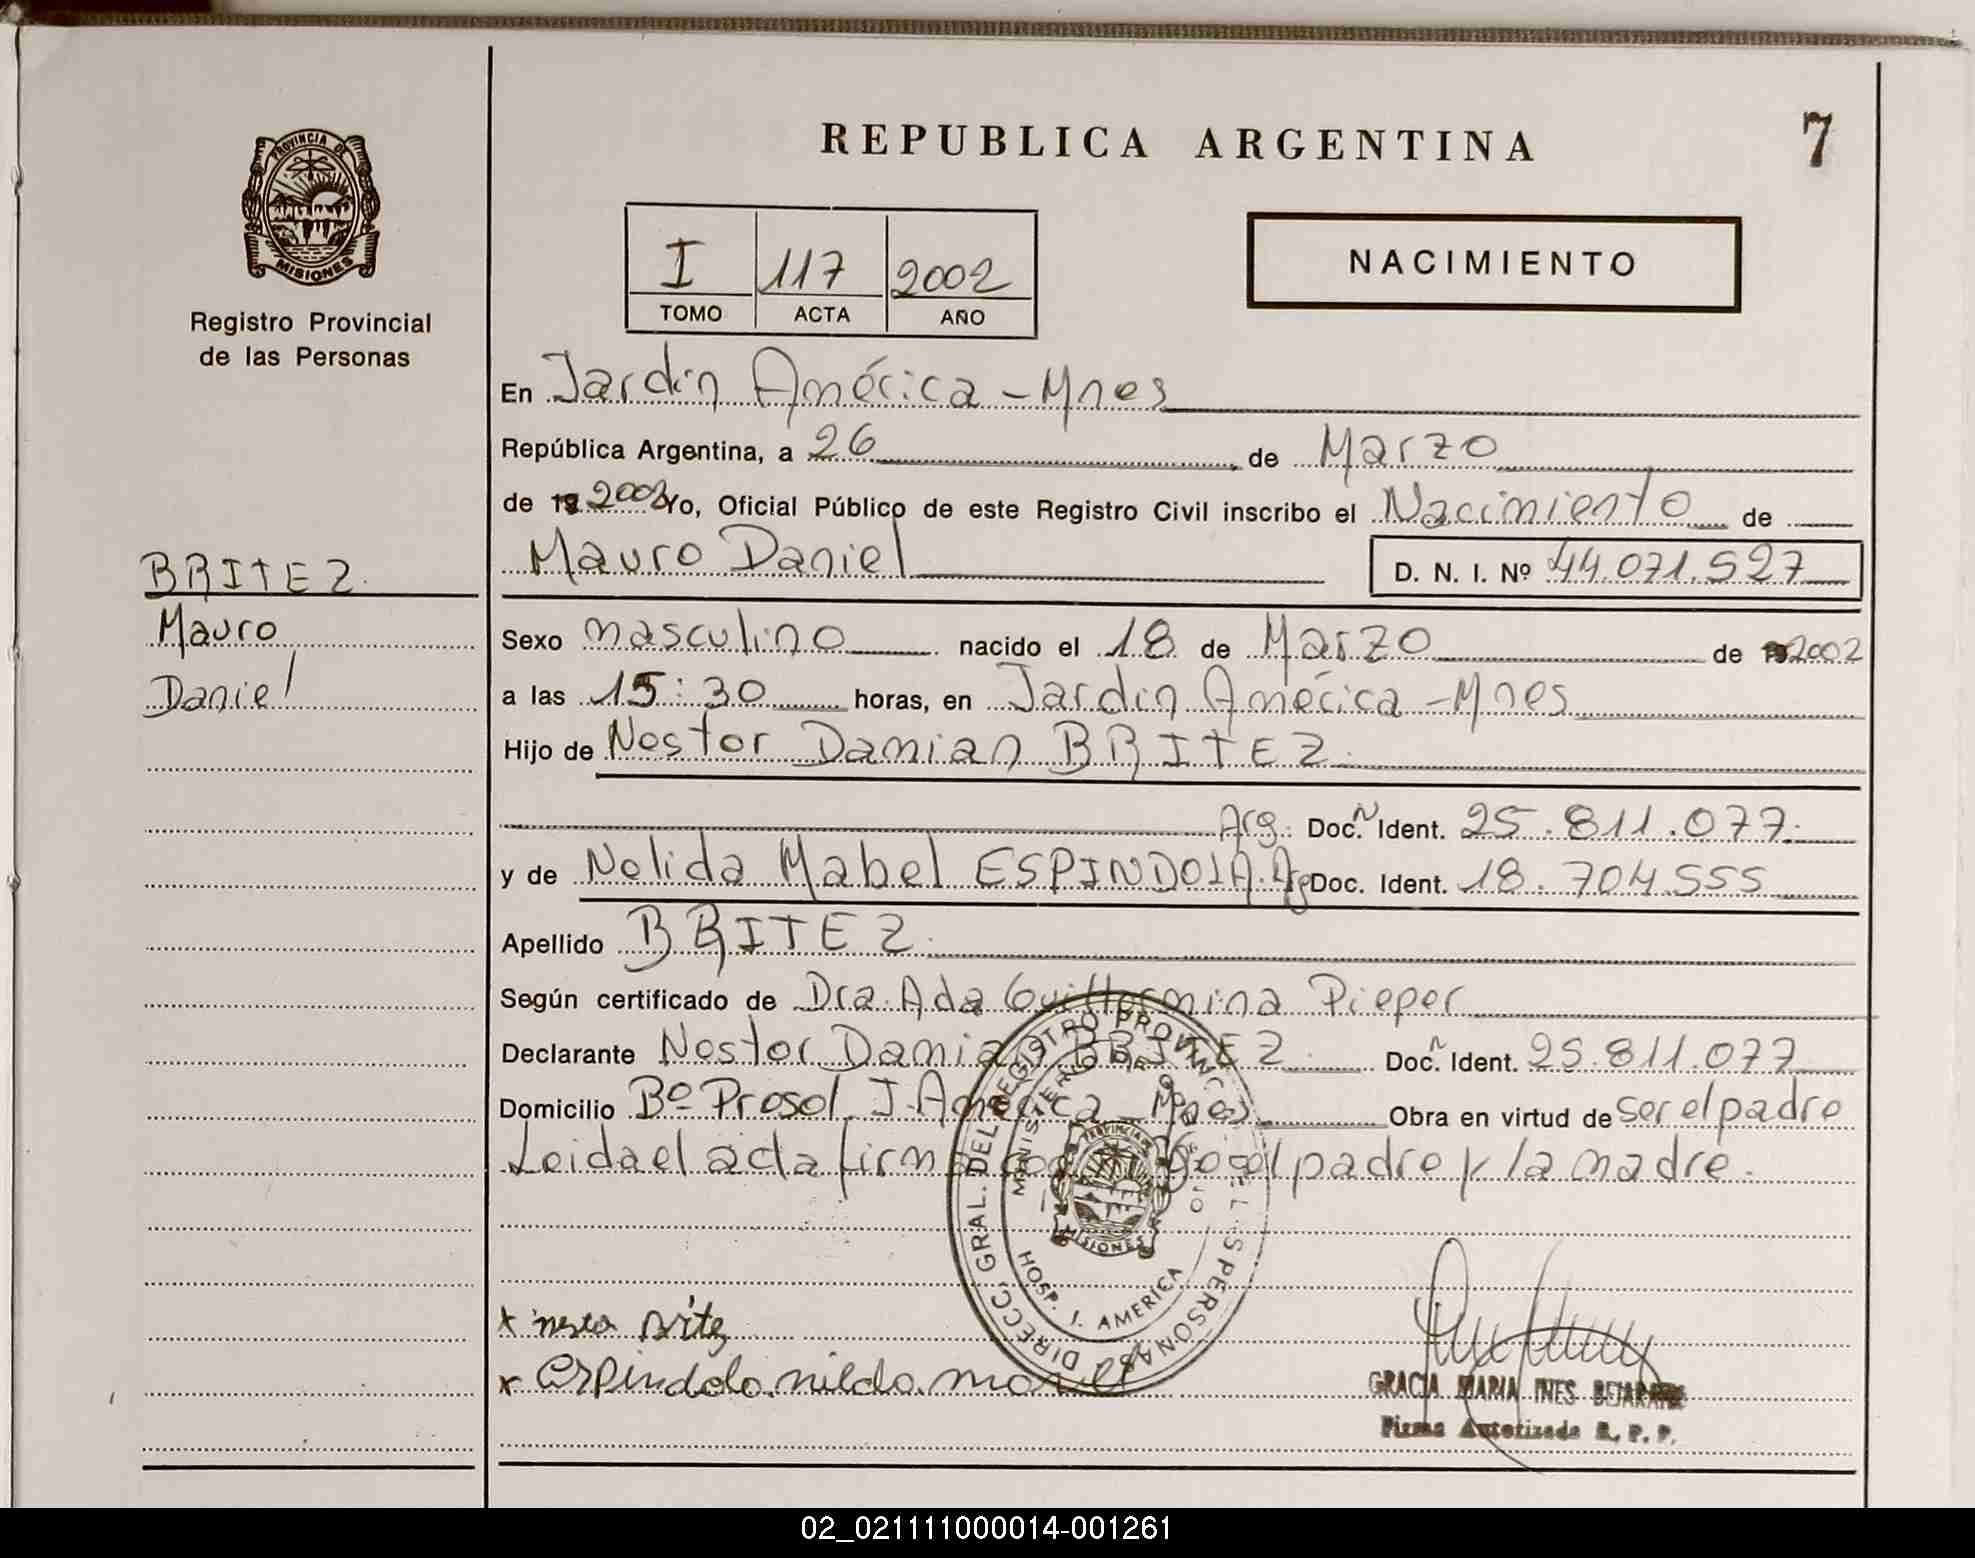 PROVINCIA DE
MISIONES
Registro Provincial
de las Personas
BRITEZ.
Mauro
Daniel
REPUBLICA ARGENTINA
7
I 117 2002
TOMO ACTA AÑO
NACIMIENTO
En Jardin América - Mnes
República Argentina, a 26 de Marzo
de 19 2002 Yo, Oficial Público de este Registro Civil inscribo el Nacimiento de
Mauro Daniel D. N. I. Nº 44.071.527
Sexo masculino nacido el 18 de Marzo de 2002
a las 15:30 horas, en Jardin América - Mnes
Hijo de Nestor Damian BRITEZ.
Arg. Doc. N Ident. 25.811.077.
y de Nelida Mabel ESPINDOLA. Arg Doc. Ident. 18.704.555
Apellido BRITEZ.
Según certificado de Dra. Ada Guillermina Pieper
Declarante Nestor Damian BRITEZ. Doc. N Ident. 25.811.077
Domicilio Bº Prosol J. América - Mnes Obra en virtud de ser el padre
Leida el acta firma el padre y la madre.
DIRECC. GRAL. DEL REGISTRO PROVINC DE LAS PERSONAS
MINISTERIO DE GOBIERNO
PROVINCIA DE
MISIONES
HOSP. J. AMERICA
x Britez
x Espindola
GRACIA MARIA INES BEJARANO
Firma Autorizada R. P. P.
02_021111000014-001261